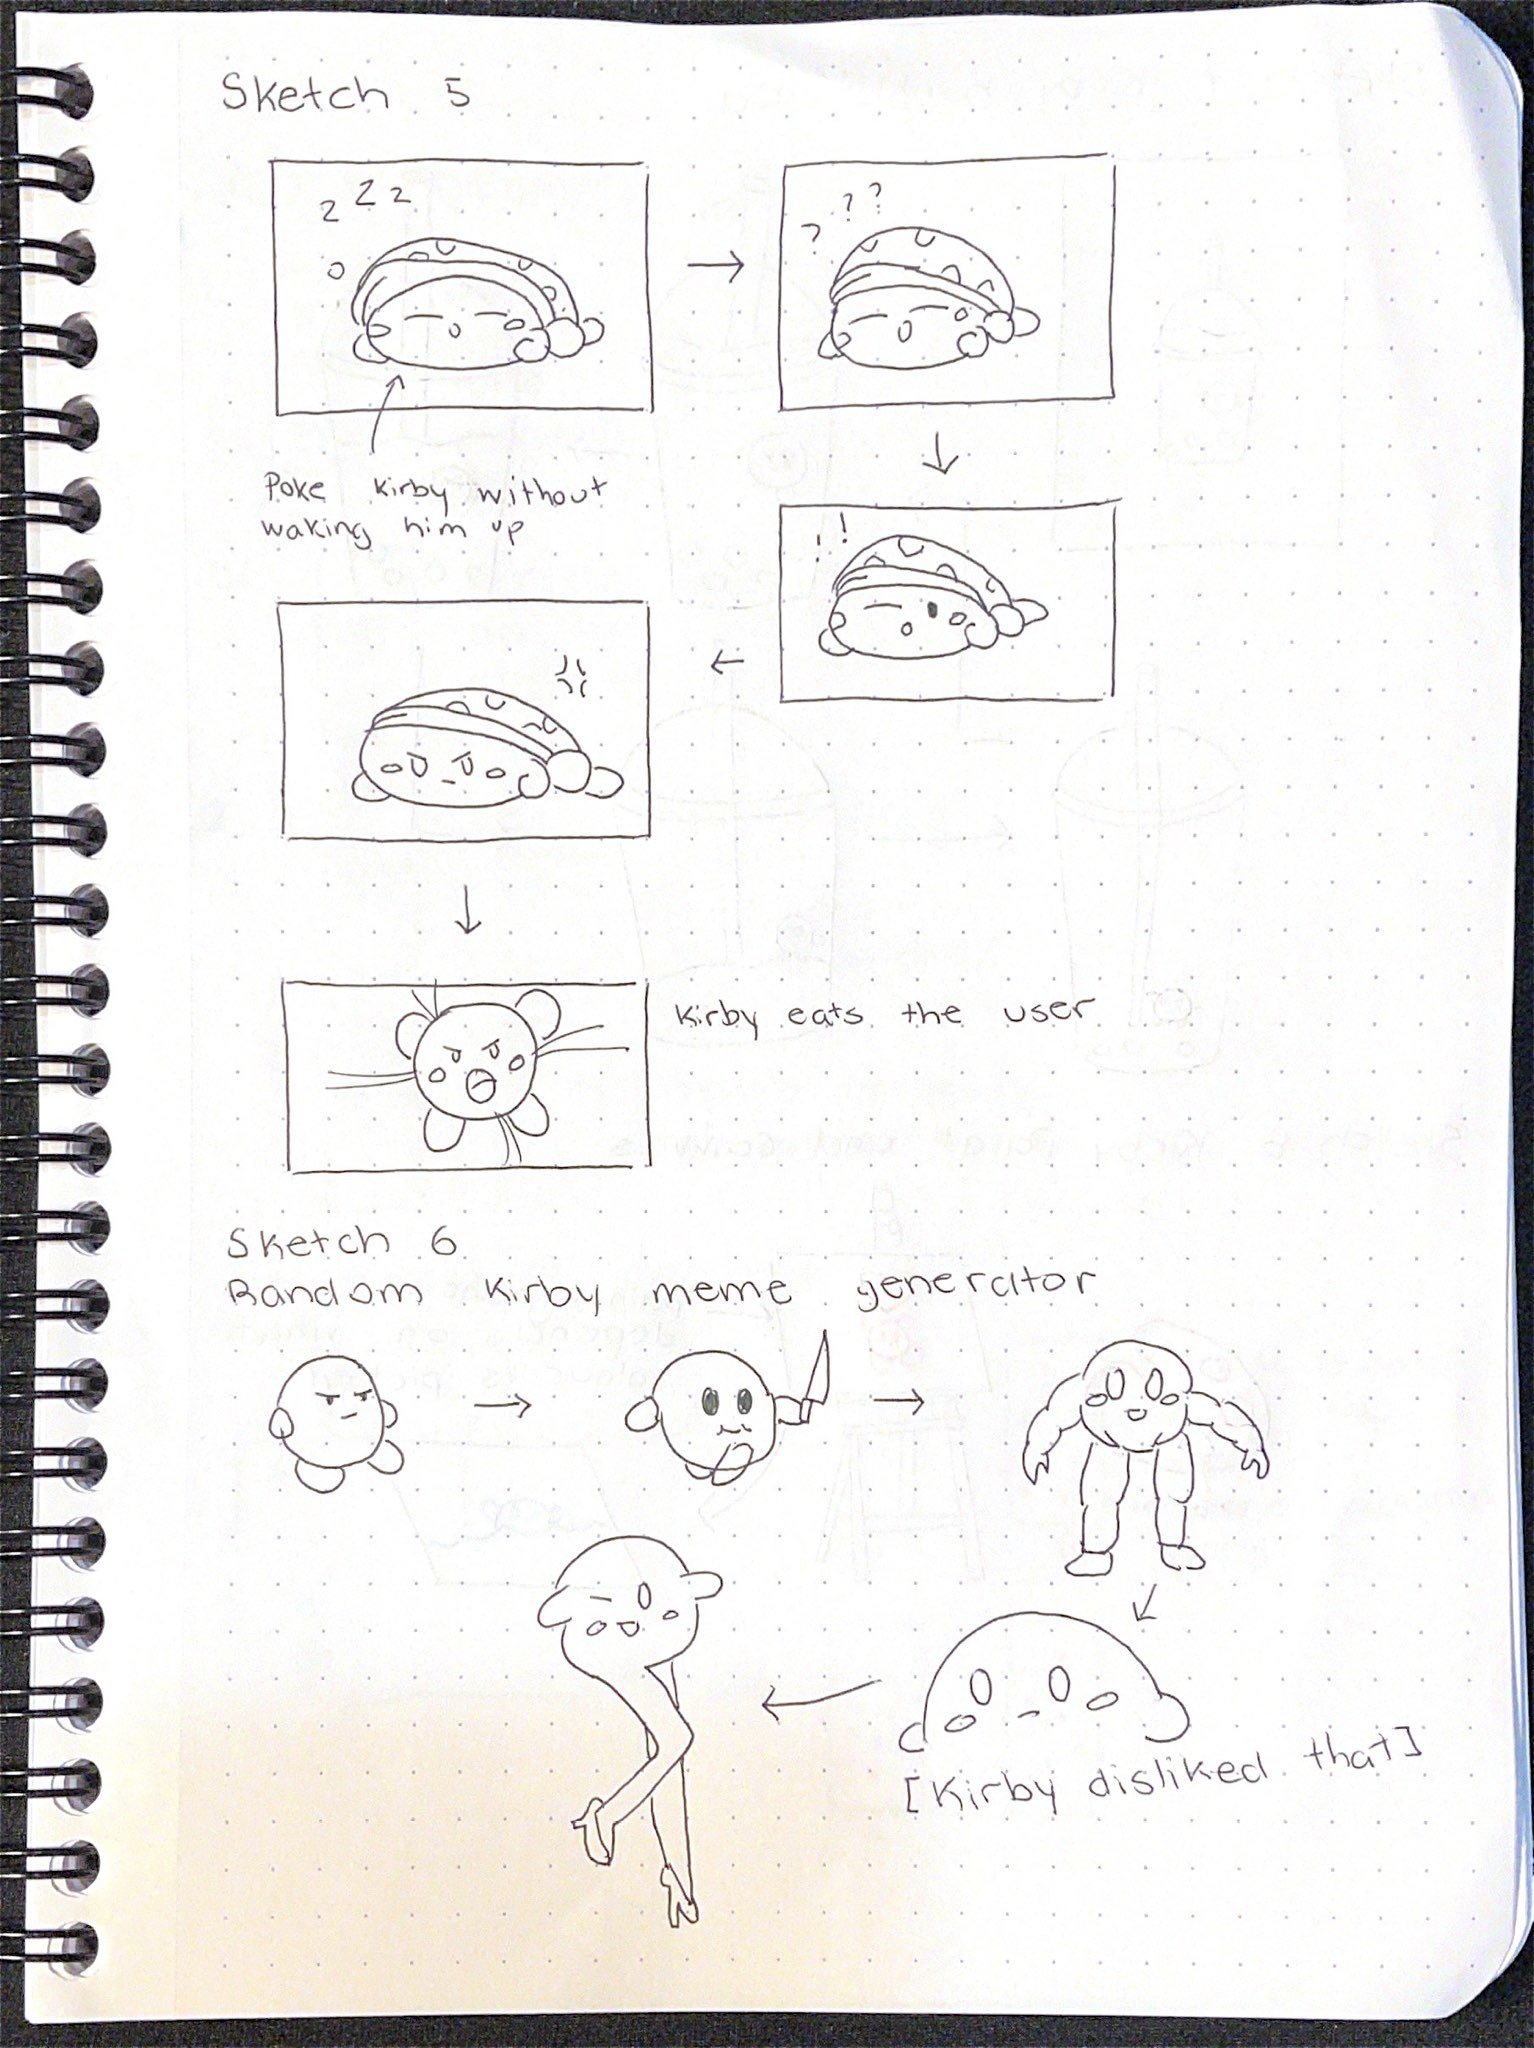 Sketch 5
z z z
? ? ?
Poke Kirby without
waking him up
! !
Kirby eats the user
Sketch 6
Random Kirby meme generator
[Kirby disliked that]